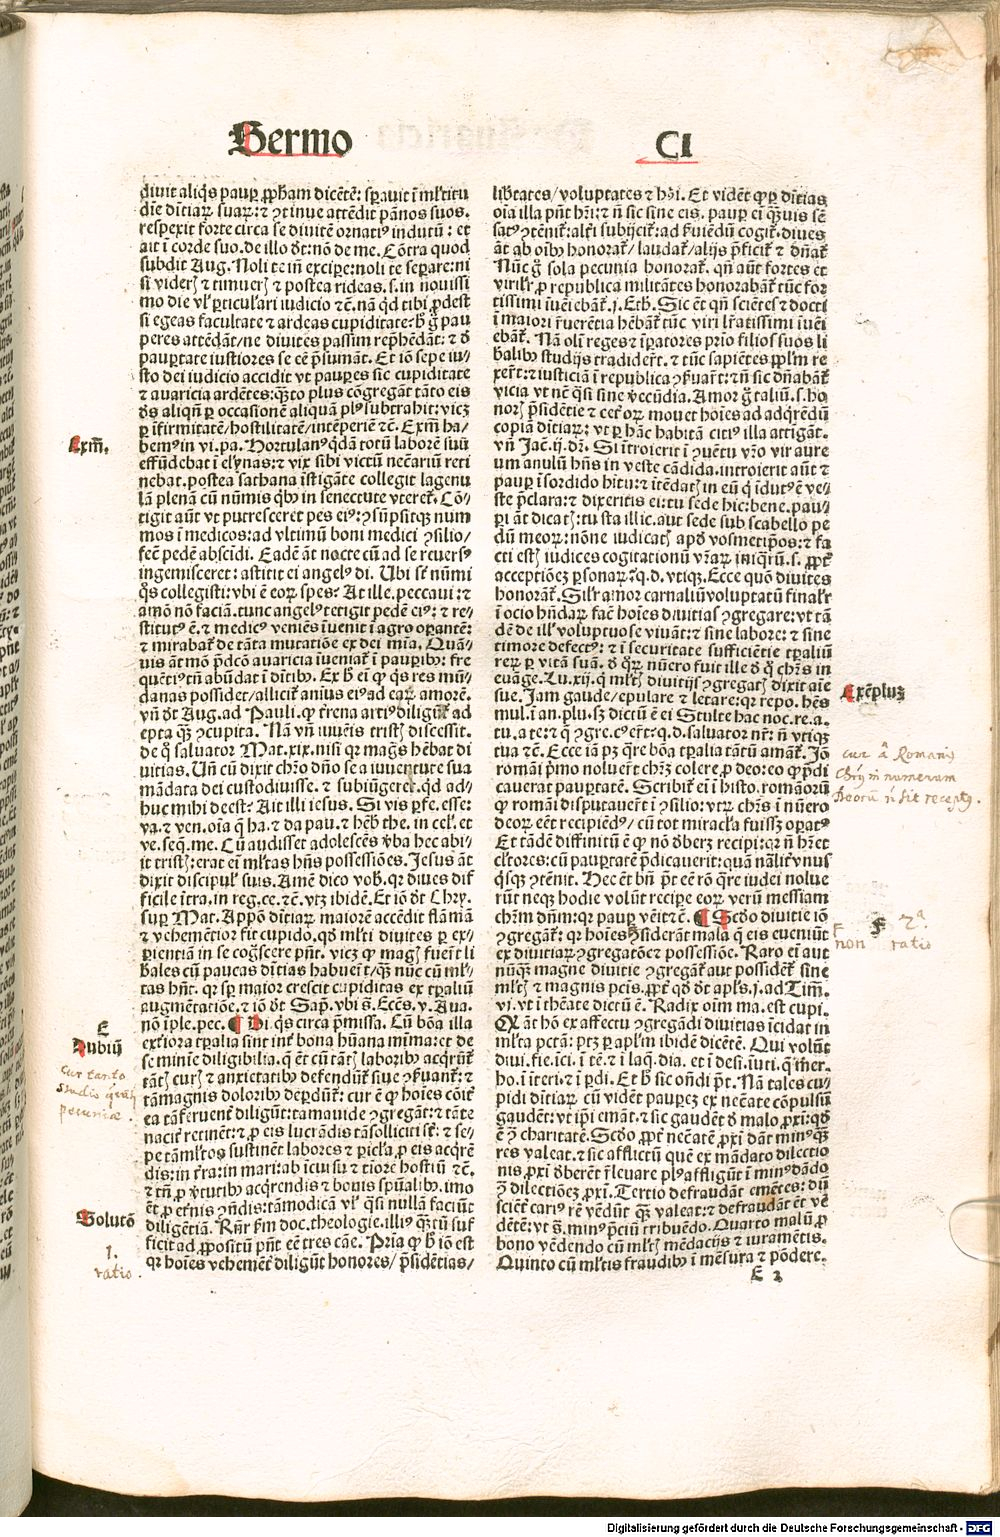 Sermo CI
diuit aliq̄s paup̄ ꝓp̄ham dicētē: sp̄auit ī ml̓titu
dīe diuitiaꝝ suaꝝ: ⁊ ꝯtinue attēdit pānos suos.
respexit forte circa se diuitē ornatiꝰ indutū: et
ait ī corde suo. de illo d̄t: nō de me. Cōtra quod
subdit Aug. Noli te in̄ excipe: noli te separe: ni
si videris ⁊ timueris ⁊ postea rideas. s. in nouissi
mo die vl̓ ꝑticulari iudicio ⁊c̄. nā qd̄ tibi ꝓdest
si egeas facultate ⁊ ardeas cupiditate: h̓ g̊ pau
peres attēdāt/ne diuites passim rep̄hēdāt: ⁊ d̓
paup̄tate iustiores se eē p̄sumāt. Et iō sepe iu⸗
sto dei iudicio accidit vt paup̄es sic cupiditate
⁊ auaricia ardētes: q̄ꝫto plus cōgregāt tāto eis
d̓s aliqn̄ ꝑ occasionē aliquā plꝰ subtrahit: vicꝫ
ꝑ īfirmitatē/hostilitatē/intēperiē ⁊c̄. Exm̄ ha⸗
Exm̄.
bemꝰ in vi. pa. Hortulanꝰ qdā totū laborē suū
effūdebat ī elynas: ⁊ vix sibi victū nec̄ariū reti
nebat. postea sathana īstigāte collegit lagenu
lā plenā cū nūmis qbꝰ in senectute vteret̄. Cō⸗
tigit aūt vt putresceret pes eiꝰ: ꝯsūpsitqꝫ num
mos ī medicos: ad vltimū boni medici ꝯsilio/
fec̄ pedē abscidi. Eadē āt nocte cū ad se reuersꝰ
ingemisceret: astitit ei angelꝰ di. Ubi st̄ nūmi
q̄s collegisti: vbi ē eoꝝ spes? At ille. peccaui: ⁊
amō nō faciā. tunc angelꝰ tetigit pedē eiꝰ: ⁊ re⸗
stitutꝰ ē. ⁊ medicꝰ veniēs īuenit ī agro oꝑantē:
⁊ mirabat̄ de tāta mutatiōe ex dei mīa. Quā⸗
uis āt mō p̄dcō auaricia īueniat̄ ī paupibꝰ: fre
quētiꝰ tn̄ abūdat ī ditibꝰ. Ex h̓ ei ꝙ q̄s res mū⸗
danas possidet/allicit̄ aniꝰ eiꝰ ad eaꝝ amorē.
vn̄ d̄t Aug. ad Pauli. ꝙ t̓rena artiꝰ diligūt̄ ad
epta q̄ꝫ ꝯcupita. Nā vn̄ iuuēis tristis discessit.
de q̊ saluator Mat. xix. nisi qꝛ magꝭ hēbat di
uitias. Un̄ cū dixit chr̄o dn̄o se a iuuentute sua
mādata dei custodiuisse. ⁊ subiūgeret̄. qd̄ ad⸗
huc mihi deest? Ait illi iesus. Si vis ꝑfe. esse:
va. ⁊ ven. oīa q̄ ha. ⁊ da pau. ⁊ hēb̓ the. in cel. et
ve. seq. me. Cū audisset adolescēs v̓ba hec abi⸗
it tristis: erat ei ml̓tas hn̄s possessiōes. Jesus āt
dixit discipul̓ suis. Amē dico vob̓. qꝛ diues dif
ficile ītra. in reg. ce. ⁊c̄. vtꝫ ibidē. Et iō d̄t Chry.
suꝑ Mat. Appō ditiaꝝ maiorē accēdit flāmā
⁊ vehemētior fit cupido. qd̓ ml̓ti diuites ꝑ ex⸗
ꝑientiā in se cog̓scere pn̄t. vicꝫ ꝙ magꝭ fuer̄t li
b̓ales cū paucas ditias habuer̄t/q̄ꝫ nūc cū ml̓⸗
tas hn̄t. qꝛ sꝑ maior crescit cupiditas ex tp̄aliū
augmētatiōe. ⁊ iō d̄t Sap. vbi s̄. Eccs. v. Aua.
nō īple. pec. ¶ Hi. q̄s circa p̄missa. Cū bōa illa
E
Dubiū
extiora tp̄alia sint int̓ bona hūana mima: et de
se minīe diligibilia. q̄ ēt cū tātꝭ laboribꝰ acqrūt̄
cur tanto
tātꝭ curꝭ ⁊ anxietatibꝰ defendūt̄ siue ꝯẜuant̄: ⁊
studio quæri
tāmagnis doloribꝰ deꝑdūt̄: cur ē ꝙ hoīes cōit̓
pecuniæ.
ea tāferuent̓ diligūt: tamauide ꝯgregāt: ⁊ tāte
nacit̓ retinēt: ⁊ ꝓ eis lucrādis tāsolliciti st̄: ⁊ se⸗
pe tāml̓tos sustinēt labores ⁊ picl̓a. ꝓ eis acqrē
dis: in t̓ra: in mari: ab īcursu ⁊ tiore hostiū ⁊c̄.
⁊ tn̄ ꝓ v̓tutibꝰ acqrendis ⁊ bonis spūalibꝰ. imo
ēt ꝓ et̓nis ꝯn̄dis: tāmodicā vl̓ q̄si nullā faciūt
Solutō
diligētiā. Rn̄r ẜm doc. theologie. illiꝰ q̄ꝫtū suf
ficit ad ꝓpositū pn̄t eē tres cāe. Pria ꝙ h̓ iō est
1.
ratio.
qꝛ hoīes vehemēt̓ diligūt honores/p̄sidētias/
lib̓tates/voluptates ⁊ hꝰi. Et vidēt ꝙ ꝑ ditias
oīa illa pn̄t hr̄i: ⁊ n̄ sic sine eis. paup̄ ei q̄ꝫuis sē
satꝰ ꝯtēnit̄: alt̓i subijcit̄: ad ẜuiēdū cogit̄. diues
āt ab oibꝰ honorat̄/laudat̄/alijs p̄ficit̄ ⁊ dn̄at̄.
Nūc g̊ sola pecunia honorat̄. qn̄ aūt fortes et
virilr̄ ꝓ republica militātes honorabāt̄ tūc for
tissimi iuēiebāt̄. j. Eth. Sic ēt qn̄ sciētes ⁊ docti
ī maiori r̄uerētia hēbāt̄ tūc viri lr̄atissimi īuēi
ebāt̄. Nā olī reges ⁊ īꝑatores prio filios suos li
b̓alibꝰ studijs tradider̄t. ⁊ tūc sapiētes ppl̓m re
xer̄t: ⁊ iusticiā ī republica ꝯẜuar̄t: ⁊ n̄ sic dn̄abāt̄
vicia vt nc̄ q̄si sine v̓ecūdia. Amor g̊ taliū. s. ho
norꝭ p̄sidētie ⁊ cet̓oꝝ mouet hoīes ad adqrēdū
copiā ditiaꝝ: vt ꝑ hāc habitā citiꝰ illa attīgāt.
vn̄ Jac. ij. dr̄. Si ītroierit ī ꝯuētu vr̄o vir aure
um anulū hn̄s in veste cādida. introierit aūt ⁊
paup̄ ī sordido hitu: ⁊ ītēdatꝭ in eū q̄ īdutꝰ ē ve⸗
ste p̄clara: ⁊ dixeritis ei: tu sede hic: bene. pau⸗
ꝑi āt dicatꝭ: tu sta illic. aut sede sub scabello pe
dū meoꝝ: nōne iudicatꝭ apd̓ vosmetip̄os: ⁊ fa
cti estis iudices cogitationū vr̄aꝝ iniqrū. s. ꝓpt̓
acceptiōeꝫ ꝑsonaꝝ. q. d. vtiqꝫ. Ecce quō diuites
honorāt̄. Silr̄ amor carnaliū voluptatū finalr̄
ī ocio hn̄daꝝ fac̄ hoīes diuitias ꝯgregare: vt tā
dē de ill̓ voluptuose viuāt: ⁊ sine labore: ⁊ sine
timore defectꝰ: ⁊ ī securitate sufficiētie tp̄aliū
reꝝ ꝑ vitā suā. d̓ q̊ꝝ nūero fuit ille d̓ q̊ chr̄s in
Exēpluꝫ
euāge. Lu. xij. q̄ ml̓tꝭ diuitijs ꝯgregatꝭ dixit aīe
sue. Jam gaude/epulare ⁊ letare: qꝛ repo. hēs
mul. ī an. plu. sꝫ dictū ē ei Stulte hac noc. re. a.
tu. a te: ⁊ q̄ ꝯgre. cꝰ er̄t: q. d. saluator nr̄: n̄ vtiqꝫ
cur â Romanis
tua ⁊c̄. Ecce iā pꝫ q̄re bōa tp̄alia tātū amāt̄. Jō
Chr̄s n̄ numerum
romāi p̄mo noluer̄t chr̄ꝫ colere. ꝓ deo: eo ꝙ p̄di
Deorū n̄ sit receptꝰ.
cauerat paup̄tatē. Scribit̄ ei ī histo. romāoꝝ
ꝙ romāi disputauer̄t ī ꝯsilio: vtꝝ chr̄s ī nūero
deoꝝ eēt recipiēdꝰ/cū tot miracl̓a fuissꝫ oꝑatꝰ
Et tādē diffinitū ē ꝙ nō d̓berꝫ recipi: qꝛ n̄ hr̄et
cl̓tores: cū paup̄tatē p̄dicauerit: quā nal̓it̓ vnus
q̄sqꝫ ꝯtēnit. Hec ēt bn̄ pt̄ eē rō q̄re iudei nolue
rūt neqꝫ hodie volūt recipe eoꝝ verū messiam
chr̄m dn̄m: qꝛ paup̄ vēit ⁊c̄. ¶ Scd̓o diuitie iō
F 2ª.
ꝯgregāt̄: qꝛ hoīes ꝯsiderāt mala q̄ eis eueniūt
non ratio
ex diuitiaꝝ ꝯgregatōe ⁊ possessiōe. Raro ei aut
nūq̄ꝫ magne diuitie ꝯgregāt̄ aut possidēt̄ sine
ml̓tꝭ ⁊ magnis pctis. ꝓpt̓ qd̓ d̄t apl̓s. j. ad Tim̄.
vi. vt ī theāte dictū ē. Radix oīm ma. est cupi.
Qꝙ āt hō ex affectu ꝯgregādi diuitias īcidat in
ml̓ta pctā: ptꝫ ꝑ apl̓m ibidē dicētē. Qui volūt
diui. fie. ici. ī tē. ⁊ ī laq. dia. et ī desi. iuti. q̄ mer.
ho. ī īteri. ⁊ ī p̄di. Et h̓ sic on̄di pt̄. Nā tales cu⸗
pidi ditiaꝝ cū vidēt paup̄eꝫ ex nec̄ate cōpulsū
gaudēt: vt ip̄i emāt. ⁊ sic gaudēt d̓ malo ꝓxi: qd̓
ē ꝯ̄ charitatē. Scd̓o ꝓpt̓ nec̄atē ꝓxi dāt minꝰ q̄ꝫ
res valeat. ⁊ sic afflictū quē ex mādato dilectio
nis ꝓxi d̓berēt r̄leuare plꝰ affligūt ī minꝰ dādo
ꝯ̄ dilectiōeꝫ ꝓxi. Tertio defraudāt emētes: dū
sciēt̓ cariꝰ rē vēdūt q̄ꝫ valeat: ⁊ defraudāt ēt vē
dētē: vt s̄. minꝰ p̄ciū tribuēdo. Quarto malū ꝓ
bono vēdendo cū ml̓tꝭ mēdacijs ⁊ iuramētis.
Quinto cū ml̓tis fraudibꝰ ī mēsura ⁊ pōdere.
E 2
Digitalisierung gefördert durch die Deutsche Forschungsgemeinschaft - DFG